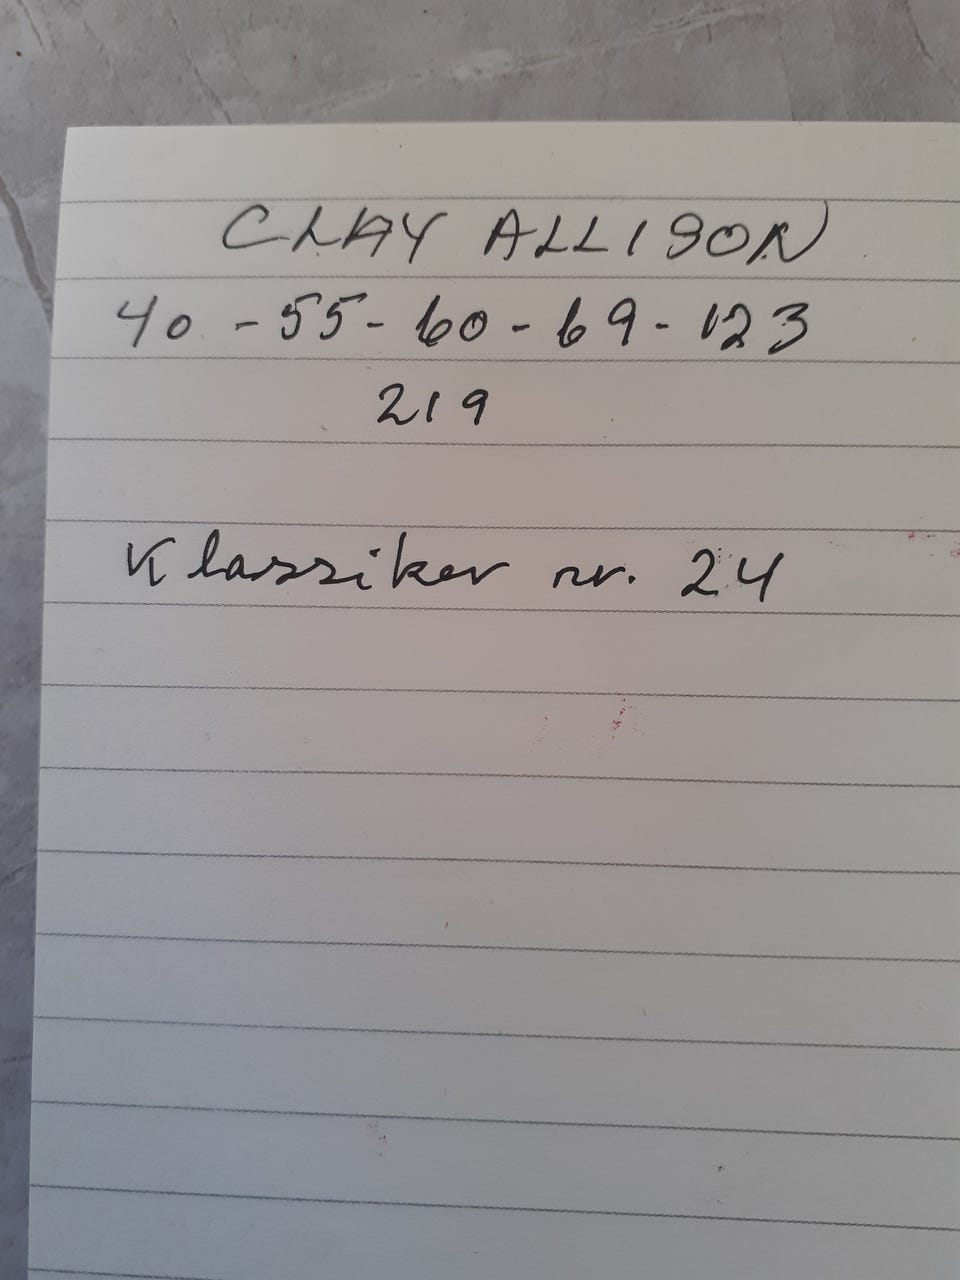 CLAY ALLISON
40 - 55 - 60 - 69 - 123
219
Klassiker nr. 24